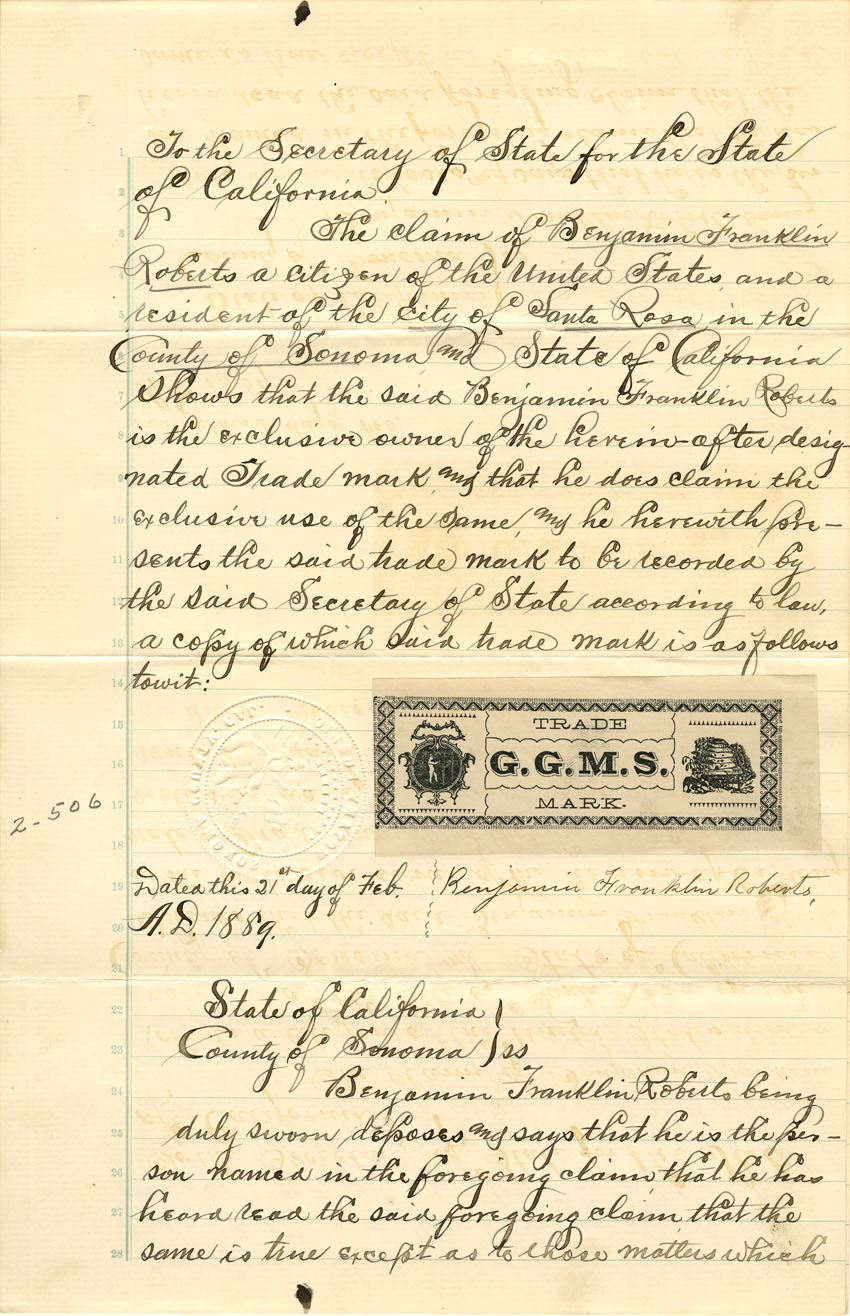 To the Secretary of State for the State
of California.
The claim of Benjamin Franklin
Roberts a citizen of the United States, and a
resident of the city of Santa Rosa in the
County of Sonoma, and State of California
Shows that the said Benjamin Franklin Roberts
is the exclusive owner of the herein-after desig-
nated Trade mark, and that he does claim the
exclusive use of the same, and he herewith pre-
sents the said trade mark to be recorded by
the said Secretary of State according to law,
a copy of which said trade mark is as follows
towit:
TRADE
G.G.M.S.
MARK.
2-506
Dated this 21st day of Feb.
A.D. 1889.
Benjamin Franklin Roberts,
State of California
County of Sonoma ss
Benjamin Franklin Roberts being
duly sworn deposes and says that he is the per-
son named in the foregoing claim, that he has
heard read the said foregoing claim, that the
same is true except as to those matters which
1
2
3
4
5
6
7
8
9
10
11
12
13
14
15
16
17
18
19
20
21
22
23
24
25
26
27
28